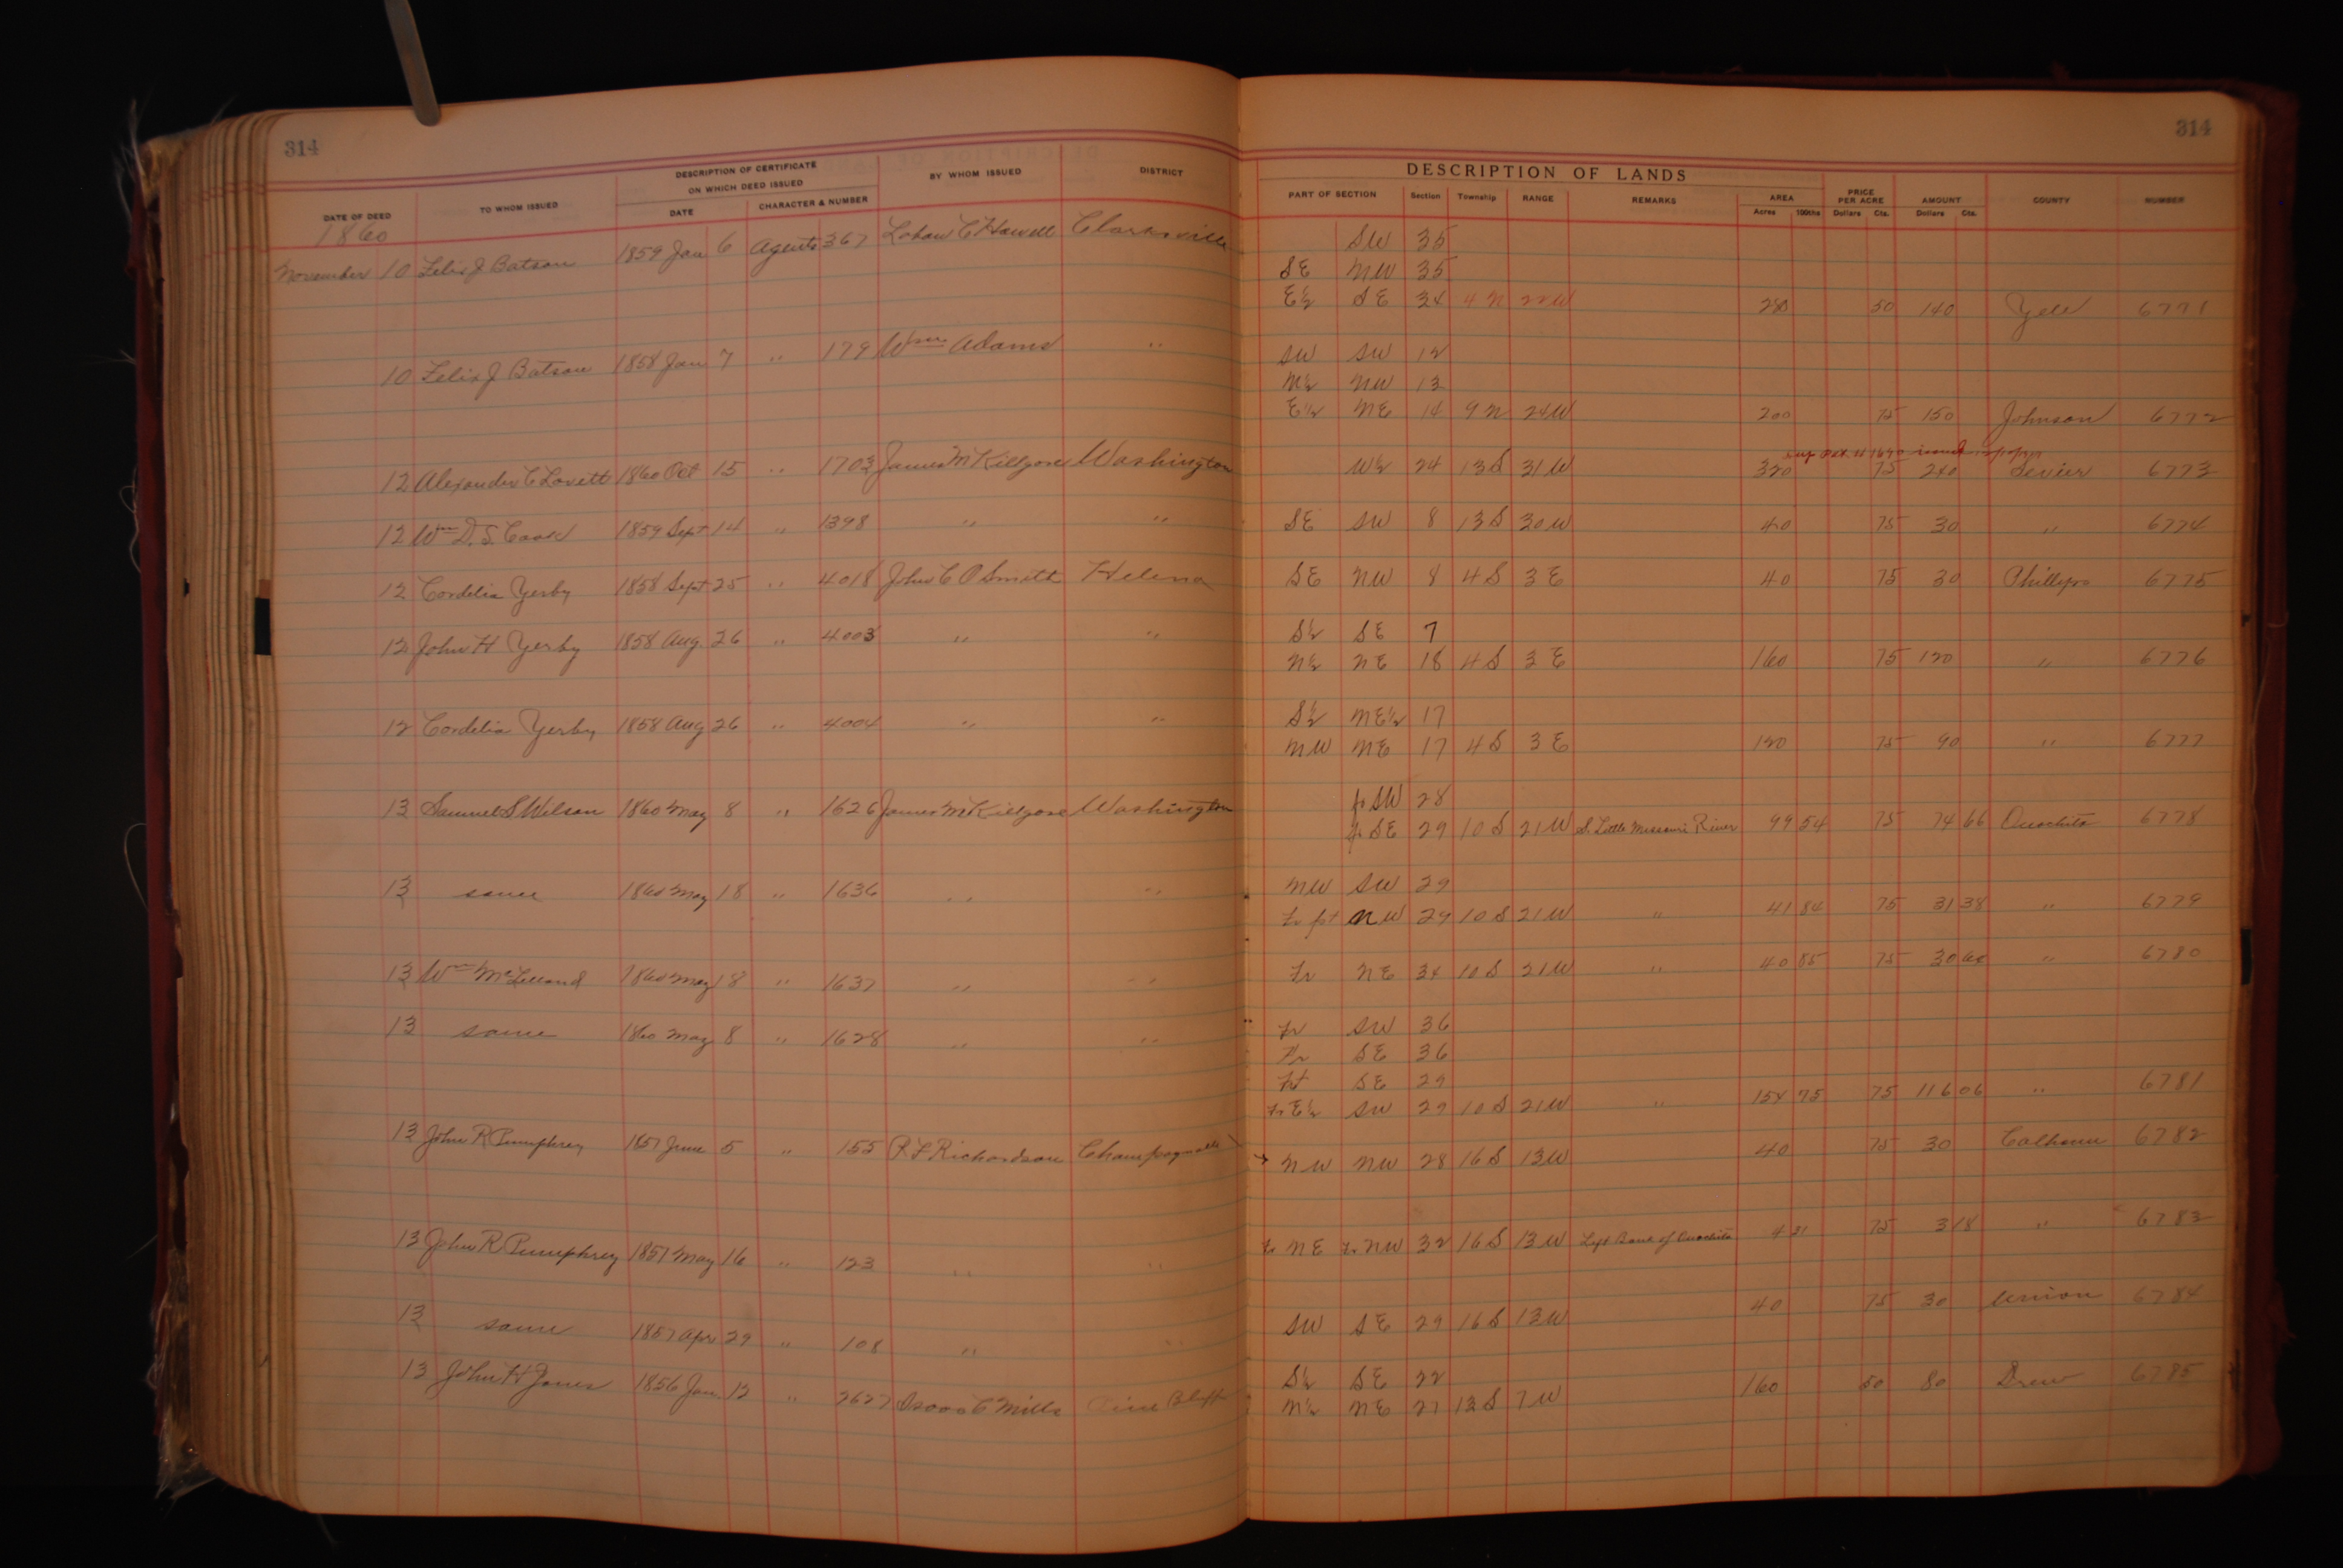 314
314
DESCRIPTION OF CERTIFICATE
ON WHICH DEED ISSUED
BY WHOM ISSUED
DISTRICT
DESCRIPTION OF LANDS
DATE OF DEED
TO WHOM ISSUED
DATE
CHARACTER & NUMBER
PART OF SECTION
Section
Township
RANGE
REMARKS
AREA
Acres
100ths
PRICE PER ACRE
Dollars
Cts.
AMOUNT
Dollars
Cts.
COUNTY
NUMBER
1860
November 10 Felix J Batson 1859 Jan 6 Agents 367 Clarksville SW 35
SE NW 35
E½ SE 34 4 N 22W 280 50 140 Yell 6771
10 Felix J Batson 1858 Jan 7 " 179 Wm Adams " SW SW 12
N½ NW 13
E½ NE 14 9 N 24W 200 75 150 Johnson 6772
12 Alexander C Lovett 1860 Oct 15 " 1703 James M Killgore Washington W½ 24 13 S 31 W 320 75 240 Sevier 6773
12 Wm D. S. Cook 1859 Sept 14 " 1398 " " SE SW 8 13 S 30 W 40 75 30 " 6774
12 Cordelia Yerby 1858 Sept 25 " 4018 John C O Smith Helena SE NW 8 4 S 3 E 40 75 30 Phillips 6775
12 John H Yerby 1858 Aug. 26 " 4003 " " S½ SE 7
N½ NE 18 4 S 3 E 160 75 120 " 6776
12 Cordelia Yerby 1858 Aug 26 " 4004 " " S½ NE¼ 17
NW NE 17 4 S 3 E 120 75 90 " 6777
13 Samuel S Wilson 1860 May 8 " 1626 James M Killgore Washington fr SW 28
fr SE 29 10 S 21 W S. Little Missouri River 99 54 75 74 66 Ouachita 6778
13 same 1860 May 18 " 1636 " " NW SW 29
Fr pt NW 29 10 S 21 W " 41 84 75 31 38 " 6779
13 Wm 1860 May 18 " 1637 " " Fr NE 34 10 S 21 W " 40 85 75 30 64 " 6780
13 same 1860 May 8 " 1628 " " Fr SW 36
Fr SE 36
SE 29
Fr E½ SW 29 10 S 21 W " 154 75 75 116 06 " 6781
13 John R Pumphrey 1857 June 5 " 155 R F Richardson Champagnolle NW NW 28 16 S 13 W 40 75 30 Calhoun 6782
13 John R Pumphrey 1857 May 16 " 123 " " Fr NE Fr NW 32 16 S 13 W Left Bank of Ouachita 4 21 75 3 18 " 6783
13 same 1857 Apr 29 " 108 " " SW SE 29 16 S 13 W 40 75 30 Union 6784
13 John H Jones 1856 Jan 12 " 2627 Isaac C Mills Pine Bluff S½ SE 22
N½ NE 27 12 S 7 W 160 50 80 Drew 6785